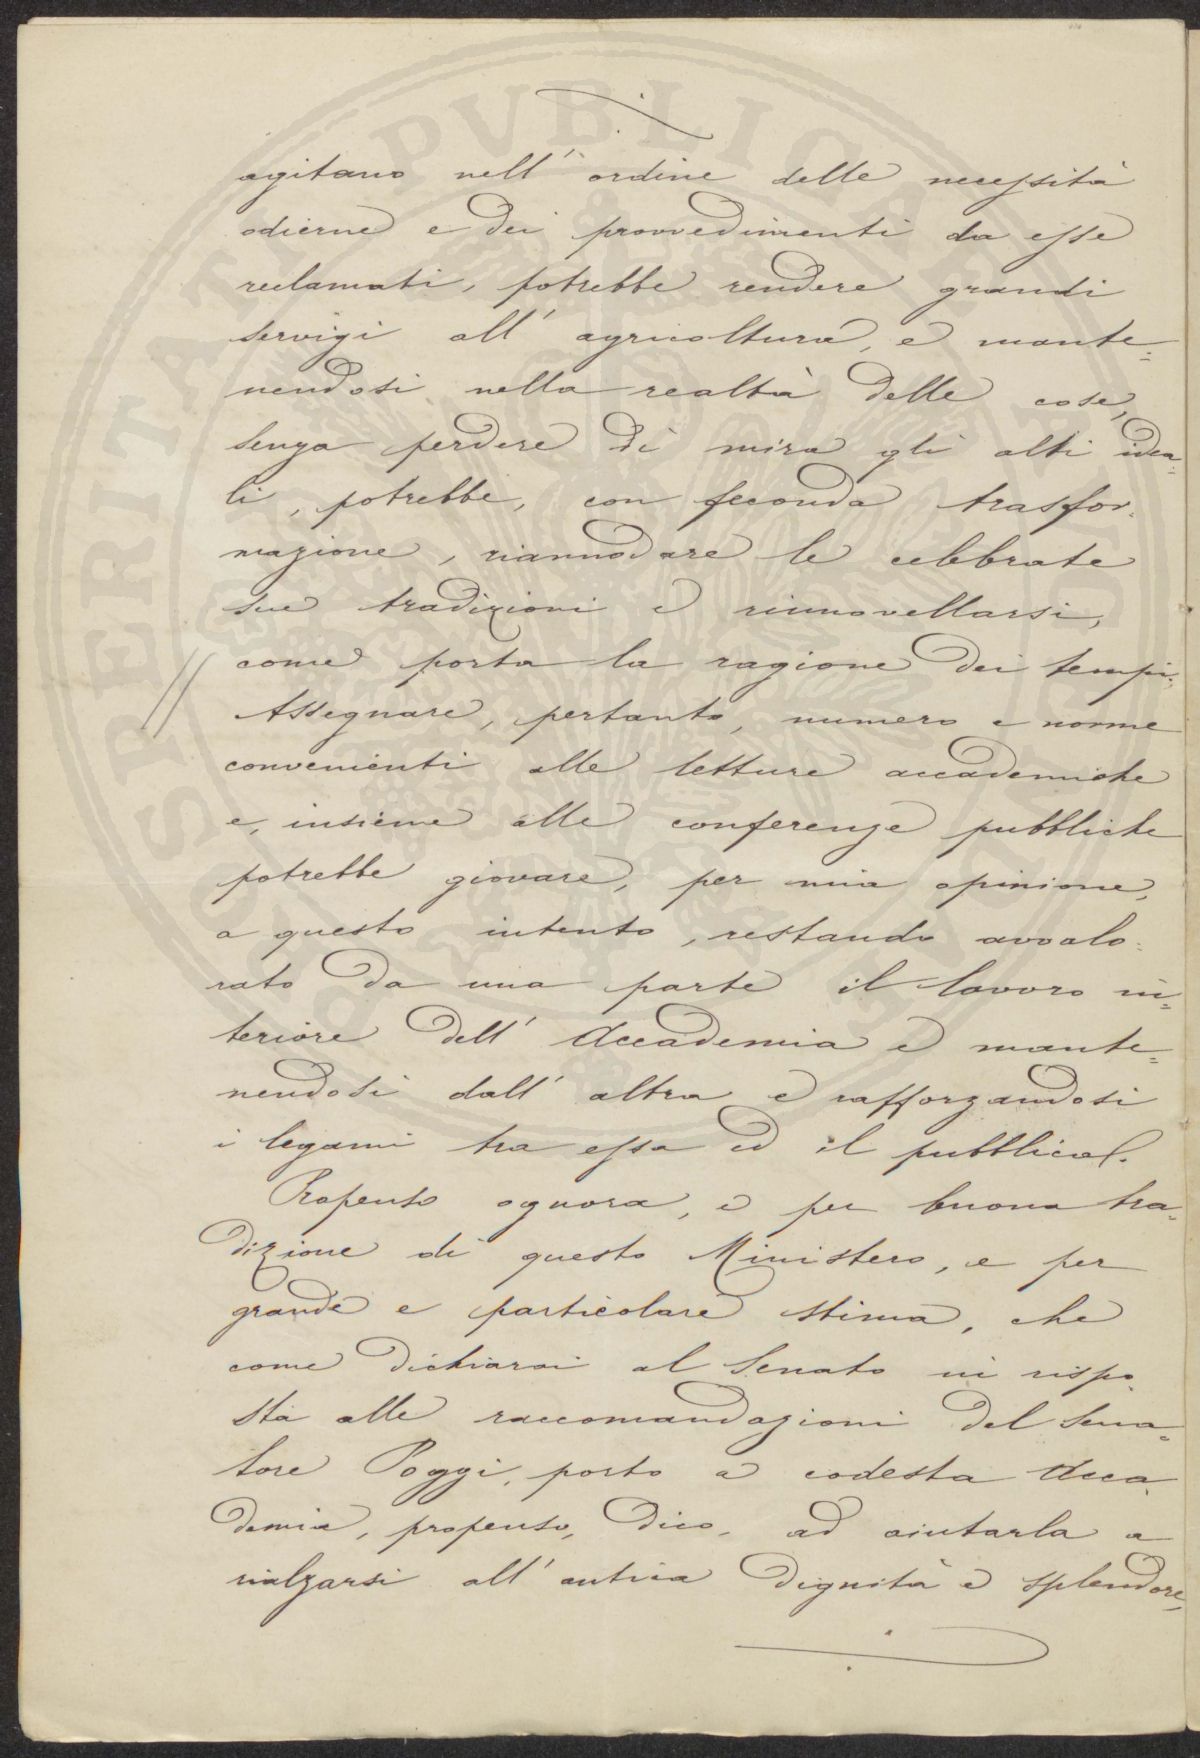 agitano nell' ordine delle necessità
odierne e dei provvedimenti da esse
reclamati, potrebbe rendere grandi
servigi all' agricoltura, e mante=
nendosi nella realtà delle cose,
senza perdere di mira gli alti idea=
li, potrebbe, con feconda trasfor=
mazione, riannodare le celebrate
sue tradizioni e rinnovellarsi,
come porta la ragione dei tempi.
Assegnare, pertanto, numero e norme
convenienti alle letture accademiche
e, insieme alle conferenze pubbliche
potrebbe giovare, per mia opinione,
a questo intento, restando avvalo=
rato da una parte il lavoro in=
teriore dell' Accademia e mante=
nendosi dall' altra e rafforzandosi
i legami tra essa ed il pubblico.
Propenso ognora, e per buona tra=
dizione di questo Ministero, e per
grande e particolare stima, che
come dichiarai al Senato in rispo=
sta alle raccomandazioni del Sena=
tore Poggi, porto a codesta Acca=
demia, propenso, dico, ad aiutarla a
rialzarsi all' antica dignità e splendore,
PROSPERITATI PUBLICAE AUGENDAE